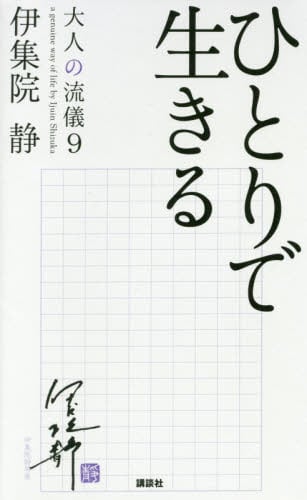 ひとりで
生きる
大人の流儀9
a genuine way of life by Ijuin Shizuka
伊集院 静
伊集院静
講談社